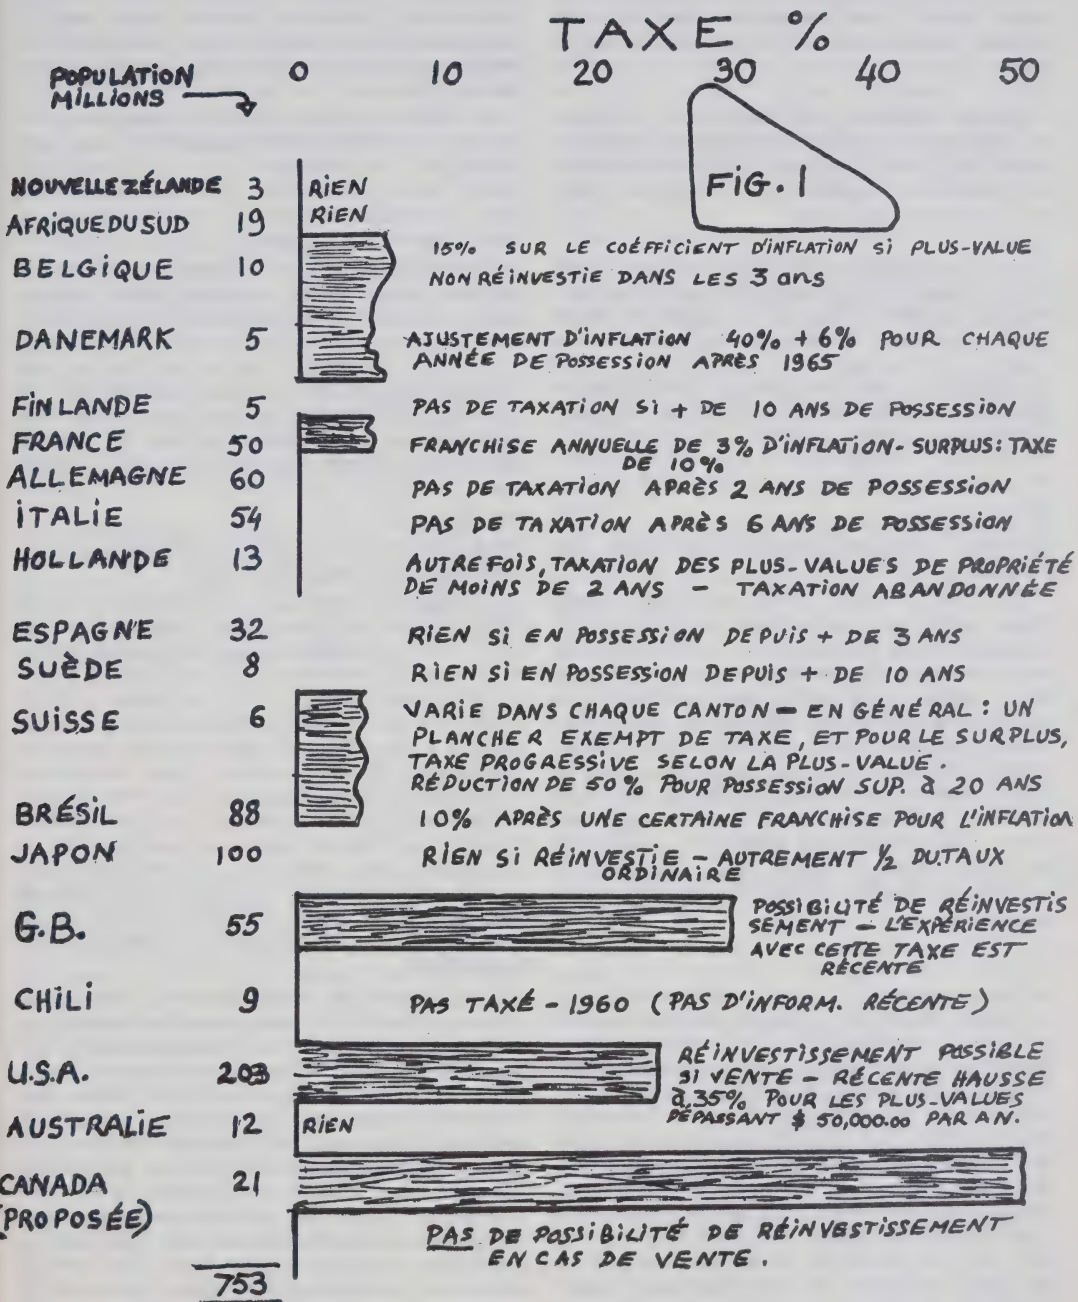 TAXE %
POPULATION
MILLIONS
0 10 20 30 40 50
FIG. 1
NOUVELLE ZÉLANDE 3 RIEN
AFRIQUE DU SUD 19 RIEN
BELGIQUE 10 15% SUR LE COÉFFICIENT D'INFLATION SI PLUS-VALUE
NON RÉINVESTIE DANS LES 3 ans
DANEMARK 5 AJUSTEMENT D'INFLATION 40% + 6% POUR CHAQUE
ANNÉE DE POSSESSION APRÈS 1965
FINLANDE 5 PAS DE TAXATION SI + DE 10 ANS DE POSSESSION
FRANCE 50 FRANCHISE ANNUELLE DE 3% D'INFLATION - SURPLUS: TAXE
DE 10%
ALLEMAGNE 60 PAS DE TAXATION APRÈS 2 ANS DE POSSESSION
ITALIE 54 PAS DE TAXATION APRÈS 6 ANS DE POSSESSION
HOLLANDE 13 AUTREFOIS, TAXATION DES PLUS-VALUES DE PROPRIÉTÉ
DE MOINS DE 2 ANS - TAXATION ABANDONNÉE
ESPAGNE 32 RIEN SI EN POSSESSION DEPUIS + DE 3 ANS
SUÈDE 8 RIEN SI EN POSSESSION DEPUIS + DE 10 ANS
SUISSE 6 VARIE DANS CHAQUE CANTON - EN GÉNÉRAL : UN
PLANCHER EXEMPT DE TAXE, ET POUR LE SURPLUS,
TAXE PROGRESSIVE SELON LA PLUS-VALUE.
RÉDUCTION DE 50% POUR POSSESSION SUP. à 20 ANS
BRÉSIL 88 10% APRÈS UNE CERTAINE FRANCHISE POUR L'INFLATION
JAPON 100 RIEN SI RÉINVESTIE - AUTREMENT ½ DU TAUX
ORDINAIRE
G.B. 55 POSSIBILITÉ DE RÉINVESTIS
SEMENT - L'EXPÉRIENCE
AVEC CETTE TAXE EST
RÉCENTE
CHILI 9 PAS TAXÉ - 1960 (PAS D'INFORM. RÉCENTE)
U.S.A. 203 RÉINVESTISSEMENT POSSIBLE
SI VENTE - RÉCENTE HAUSSE
à 35% POUR LES PLUS-VALUES
DÉPASSANT $ 50,000.00 PAR AN.
AUSTRALIE 12 RIEN
CANADA 21
(PROPOSÉE)
PAS DE POSSIBILITÉ DE RÉINVESTISSEMENT
EN CAS DE VENTE.
753